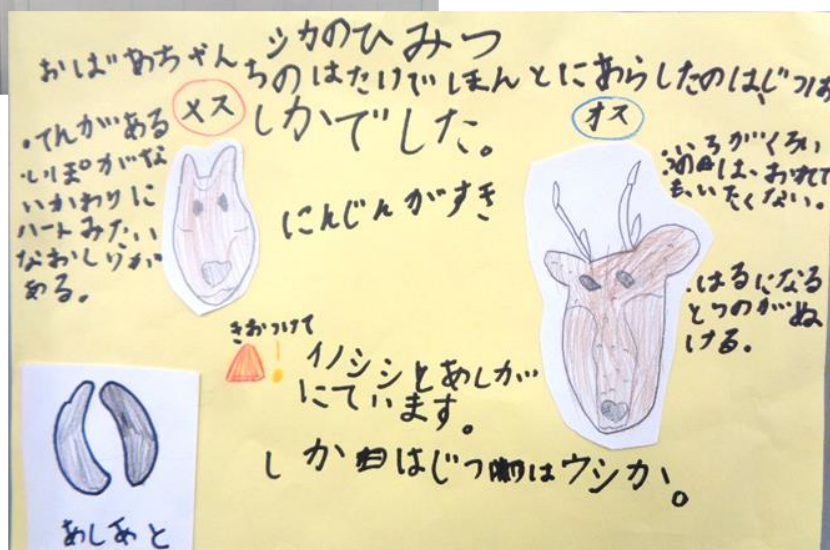 シカのひみつ
おばあちゃんちのはたけでほんとにあらしたのは、じつは
しかでした。
メス
・てんがある
・いぽがな
いかわりに
ハートみたい
なおしりが
ある。
にんじんがすき
オス
・いろがくろい
・つのは、おれて
も、いたくない。
・はるになる
とつのがぬ
ける。
きおつけて
!
イノシシとあしが
にています。
しかはじつはウシか。
あしあと